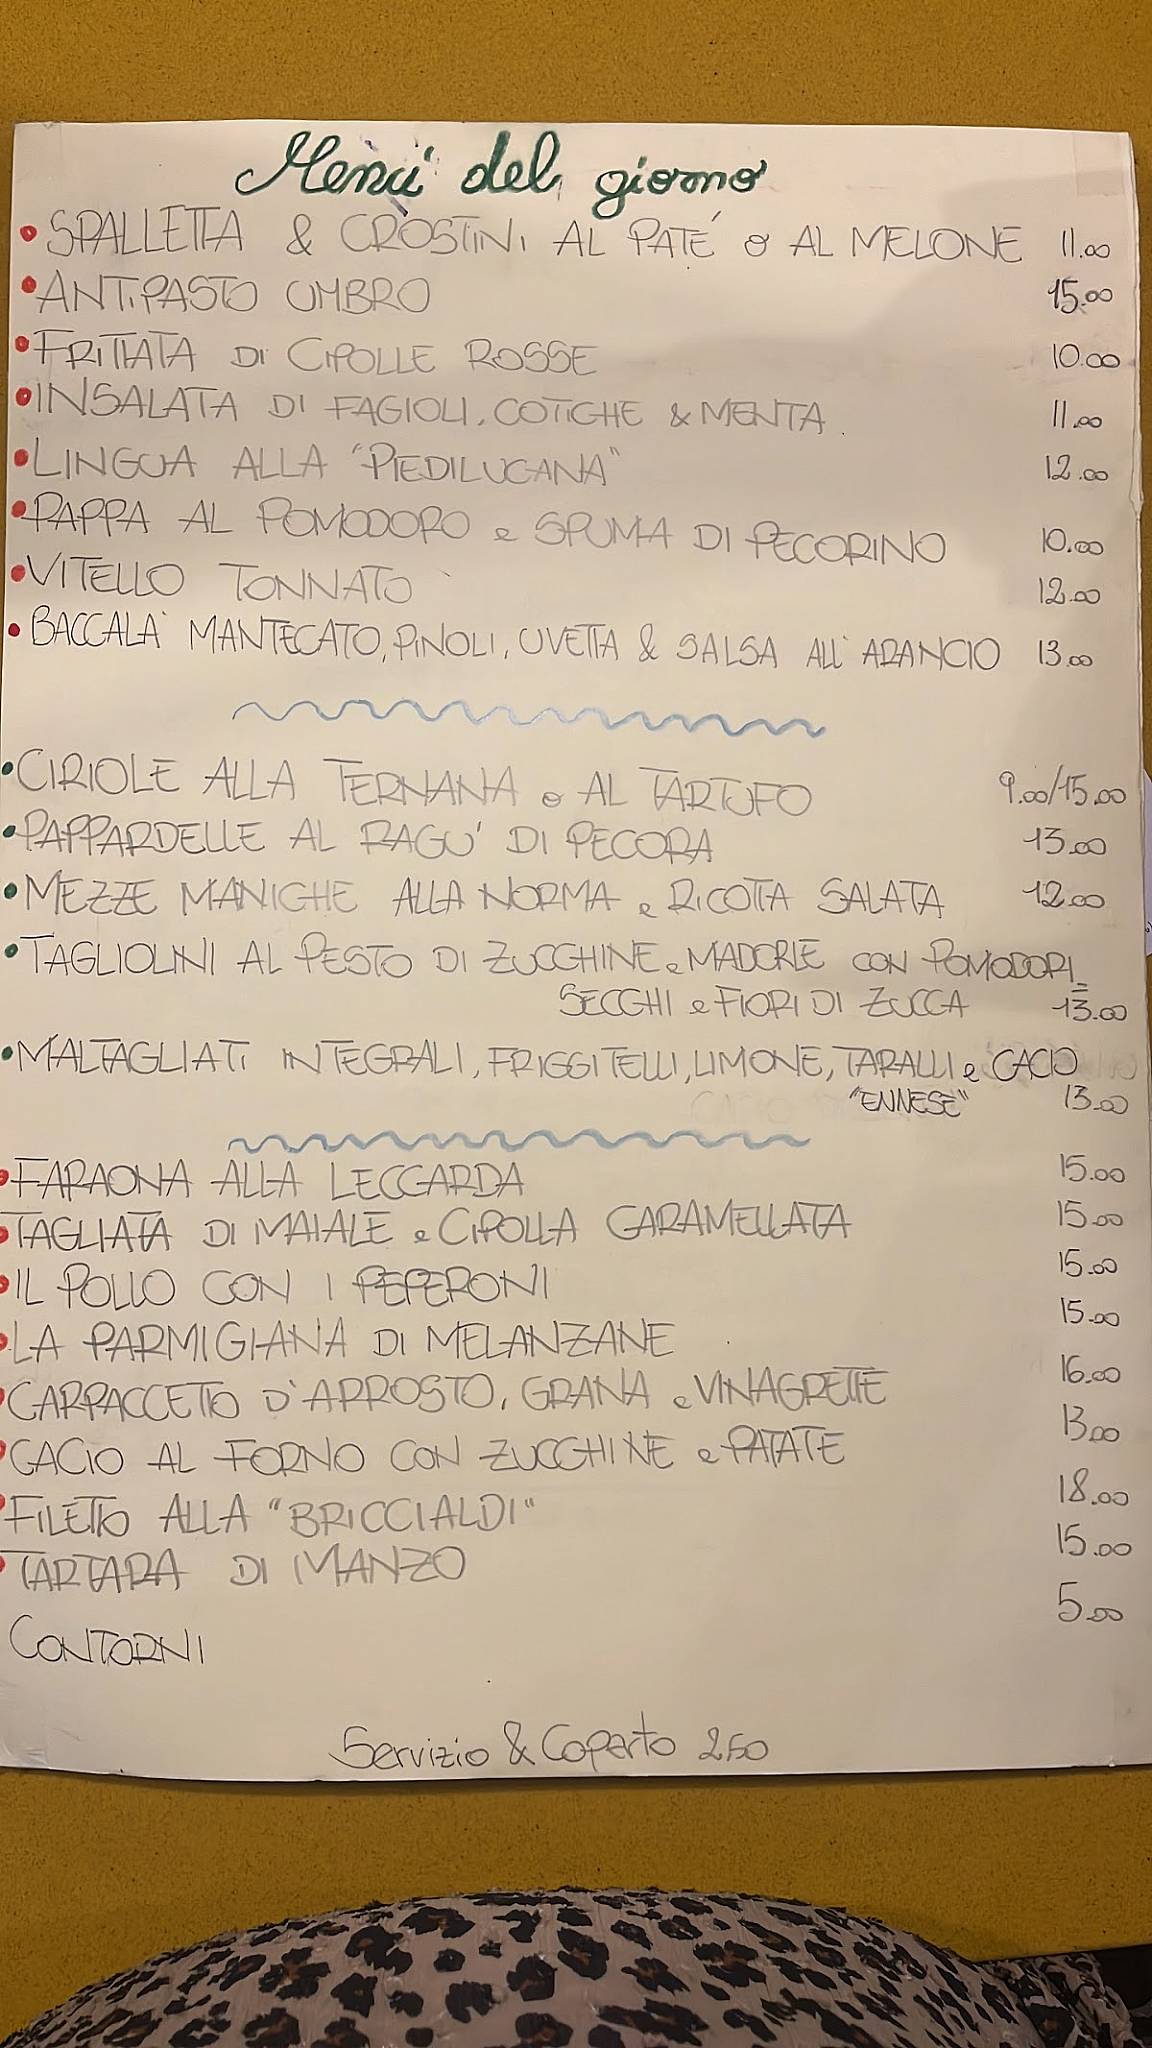 Menù del giorno
• SPALLETTA & CROSTINI AL PATÉ o AL MELONE 11.00
• ANTIPASTO UMBRO 15.00
• FRITTATA DI CIPOLLE ROSSE 10.00
• INSALATA DI FAGIOLI, COTICHE & MENTA 11.00
• LINGUA ALLA "PIEDILUCANA" 12.00
• PAPPA AL POMODORO e SPUMA DI PECORINO 10.00
• VITELLO TONNATO 12.00
• BACCALA' MANTECATO, PINOLI, UVETTA & SALSA ALL'ARANCIO 13.00
• CIRIOLE ALLA TERNANA o AL TARTUFO 9.00/15.00
• PAPPARDELLE AL RAGU' DI PECORA 13.00
• MEZZE MANICHE ALLA NORMA e RICOTTA SALATA 12.00
• TAGLIOLINI AL PESTO DI ZUCCHINE e MADORLE CON POMODORI
SECCHI e FIORI DI ZUCCA 13.00
• MALTAGLIATI INTEGRALI, FRIGGITELLI, LIMONE, TARALLI e CACIO
"ENNESE" 13.00
• FARAONA ALLA LECCARDA 15.00
• TAGLIATA DI MAIALE e CIPOLLA CARAMELLATA 15.00
• IL POLLO CON I PEPERONI 15.00
• LA PARMIGIANA DI MELANZANE 15.00
• CARPACCETTO D'ARROSTO, GRANA e VINAGRETTE 16.00
• CACIO AL FORNO CON ZUCCHINE e PATATE 13.00
• FILETTO ALLA "BRICCIALDI" 18.00
• TARTARA DI MANZO 15.00
CONTORNI 5.00
Servizio & Coperto 2.50